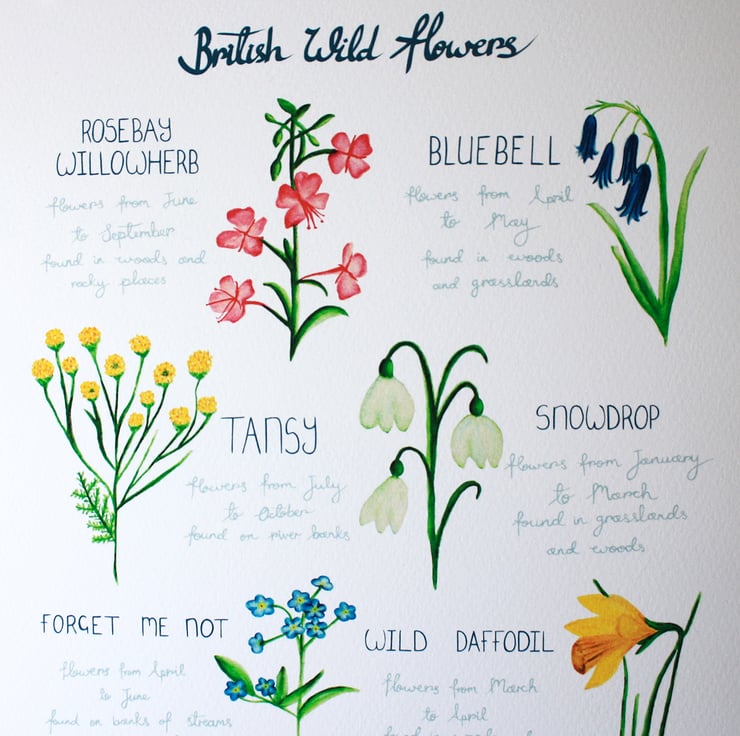 British Wild flowers
ROSEBAY
WILLOWHERB
flowers from June
to September
found in woods and
rocky places
BLUEBELL
flowers from April
to May
found in woods
and grasslands
TANSY
flowers from July
to October
found on river banks
SNOWDROP
flowers from January
to March
found in grasslands
and woods
FORGET ME NOT
flowers from April
to June
found on banks of streams
WILD DAFFODIL
flowers from March
to April